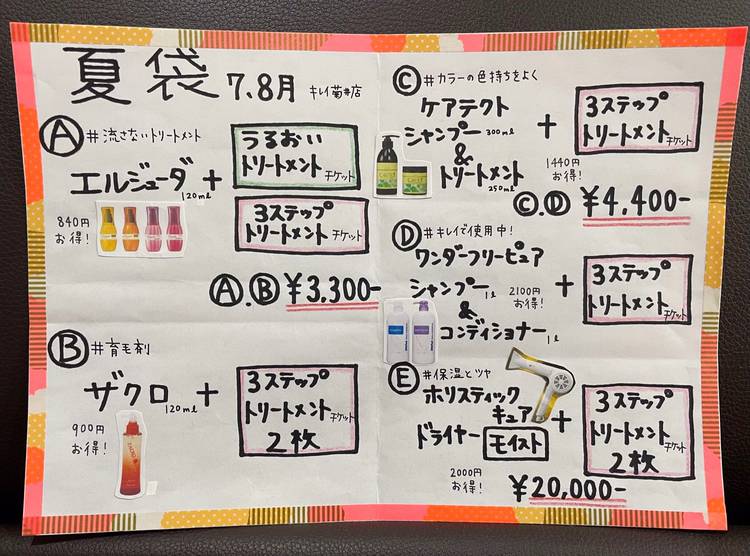 夏袋 7.8月 キレイ菊井店
Ⓐ #流さないトリートメント
エルジューダ 120ml +
うるおい
トリートメント チケット
3ステップ
トリートメント チケット
840円
お得!
Ⓐ.Ⓑ ¥3,300-
Ⓑ #育毛剤
ザクロ 120ml +
3ステップ
トリートメント チケット
2枚
900円
お得!
Ⓒ #カラーの色持ちをよく
ケアテクト
シャンプー 300ml
&
トリートメント
250ml
+
3ステップ
トリートメント チケット
1440円
お得!
Ⓒ.Ⓓ ¥4,400-
Ⓓ #キレイで使用中!
ワンダーフリーピュア
シャンプー 1l
&
コンディショナー 1l
2100円
お得!
+
3ステップ
トリートメント チケット
Ⓔ #保湿とツヤ
ホリスティック
キュア
ドライヤー モイスト
+
3ステップ
トリートメント チケット
2枚
2000円
お得!
¥20,000-